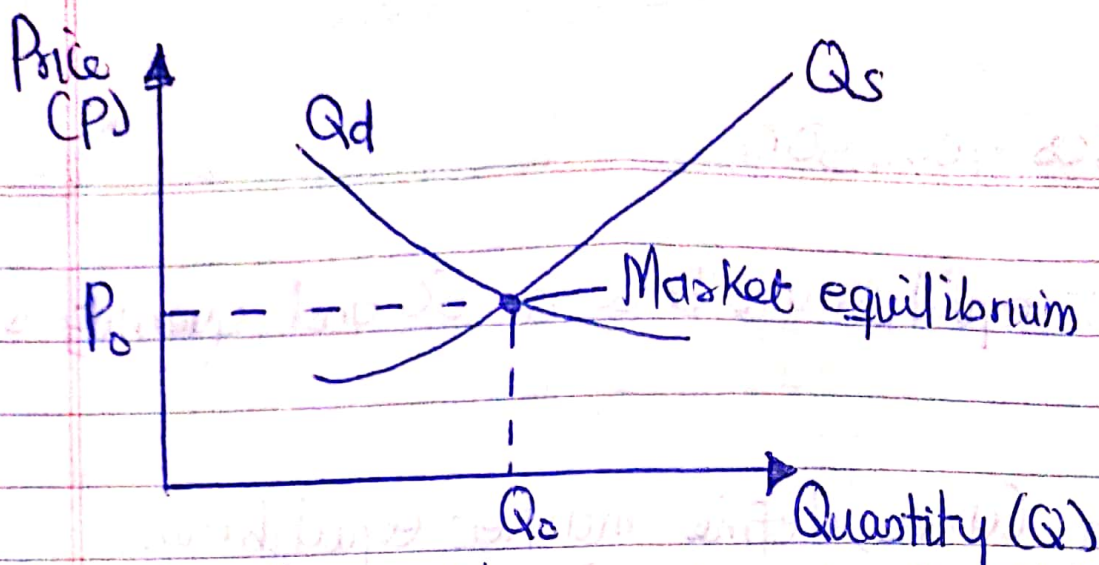 Price
(P)
Qd
Qs
P₀
Market equilibrium
Q₀
Quantity (Q)